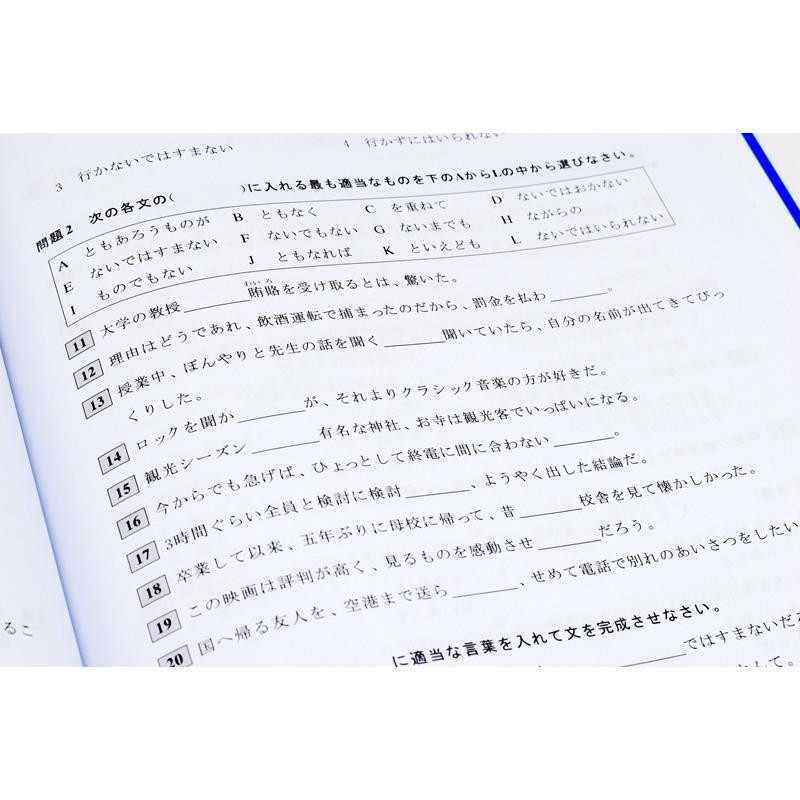 3 行かないではすまない
4 行かずにはいられない
問題2 次の各文の( )に入れる最も適当なものを下のAからLの中から選びなさい。
A ともあろうものが B ともなく C を重ねて D ないではおかない
E ないではすまない F ないでもない G ないまでも H ながらの
I ものでもない J ともなれば K といえども L ないではいられない
わいろ
11 大学の教授______賄賂を受け取るとは、驚いた。
12 理由はどうであれ、飲酒運転で捕まったのだから、罰金を払わ______。
13 授業中、ぼんやりと先生の話を聞く______聞いていたら、自分の名前が出てきてびっ
くりした。
14 ロックを聞か______が、それよりクラシック音楽の方が好きだ。
15 観光シーズン______有名な神社、お寺は観光客でいっぱいになる。
16 今からでも急げば、ひょっとして終電に間に合わない______。
17 3時間ぐらい全員と検討に検討______、ようやく出した結論だ。
18 卒業して以来、五年ぶりに母校に帰って、昔______校舎を見て懐かしかった。
19 この映画は評判が高く、見るものを感動させ______だろう。
20 国へ帰る友人を、空港まで送ら______、せめて電話で別れのあいさつをしたい
に適当な言葉を入れて文を完成させなさい。
______ではすまないだろ
るこ